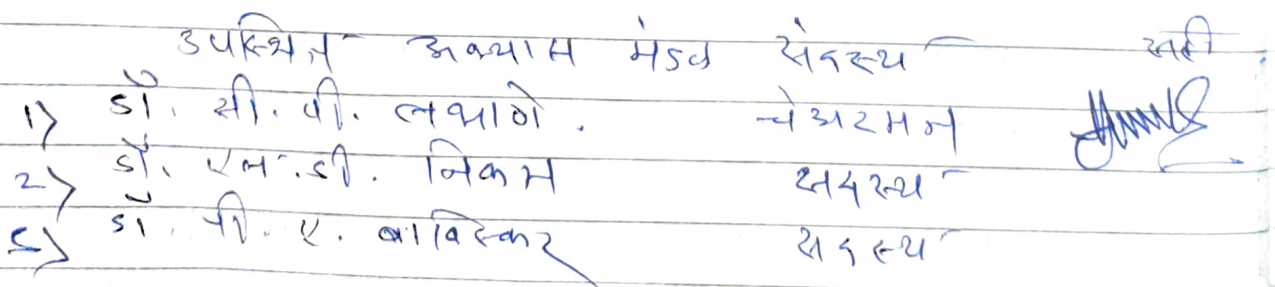 उपस्थित अभ्यास मंडळ सदस्य सही
1) डॉ. सी. पी. लभाणे. चेअरमन
2) डॉ. एल. डी. निकम सदस्य
3) डॉ. पी. ए. बाविस्कर सदस्य